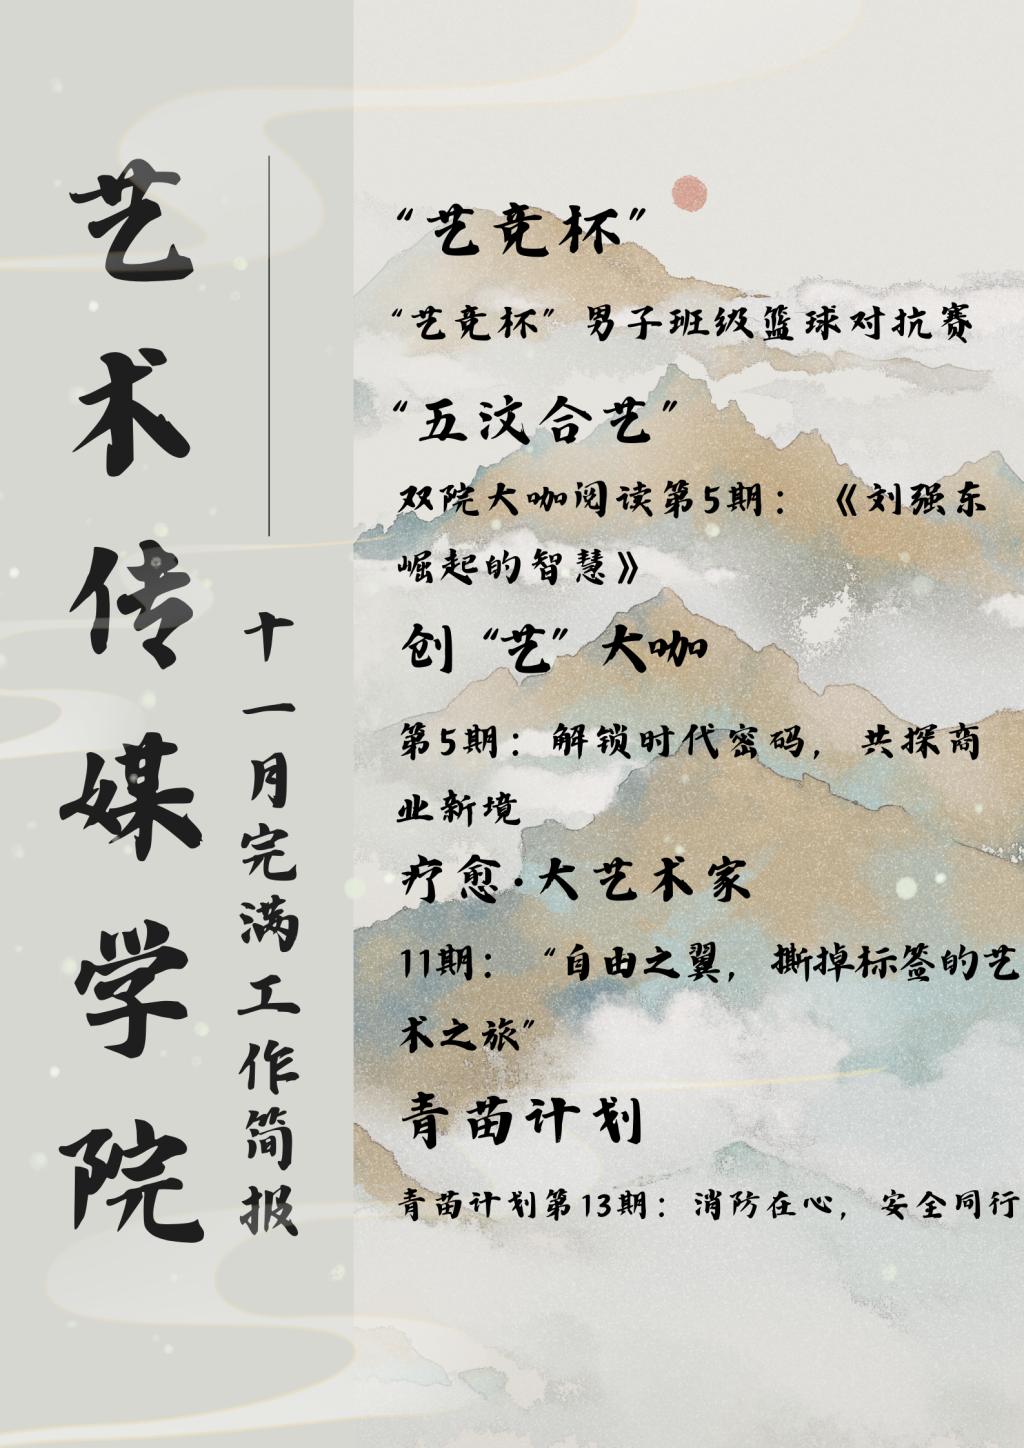 艺术传媒学院
十一月完满工作简报
“艺竞杯”
“艺竞杯”男子班级篮球对抗赛
“五汶合艺”
双院大咖阅读第5期：《刘强东
崛起的智慧》
创“艺”大咖
第5期：解锁时代密码，共探商
业新境
疗愈·大艺术家
11期：“自由之翼，撕掉标签的艺
术之旅”
青苗计划
青苗计划第13期：消防在心，安全同行